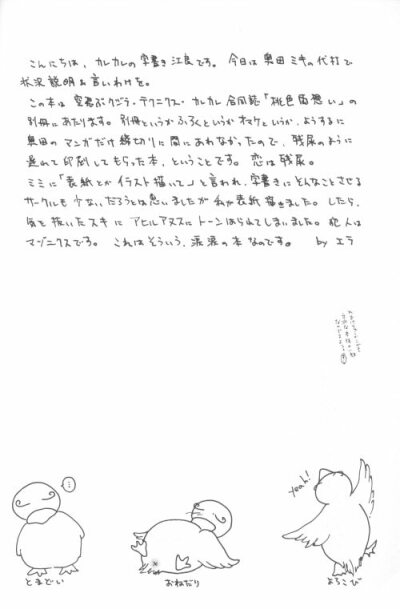 こんにちは、カレカレの字書き江良です。今日は奥田ミキの代打で
状況説明&言いわけを。
この本は空飛ぶクジラ・テクニクス・カレカレ合同誌「桃色片想い」の
別冊にあたります。別冊というかふろくというかオマケというか、ようするに
奥田のマンガだけ締切りに間にあわなかったので、残尿のように
遅れて印刷してもらった本、ということです。恋は残尿。
ミミに「表紙とかイラスト描いて」と言われ、字書きにどんなことさせる
サークルも少ないだろうとは思いましたが私が表紙描きました。したら、
気を抜いたスキにアヒルアヌスにトーンはられてしまいました。犯人は
マゾニクスです。これはそういう、涙涙の本なのです。 by エラ
…
Yeah!
とまどい
おねだり
よろこび